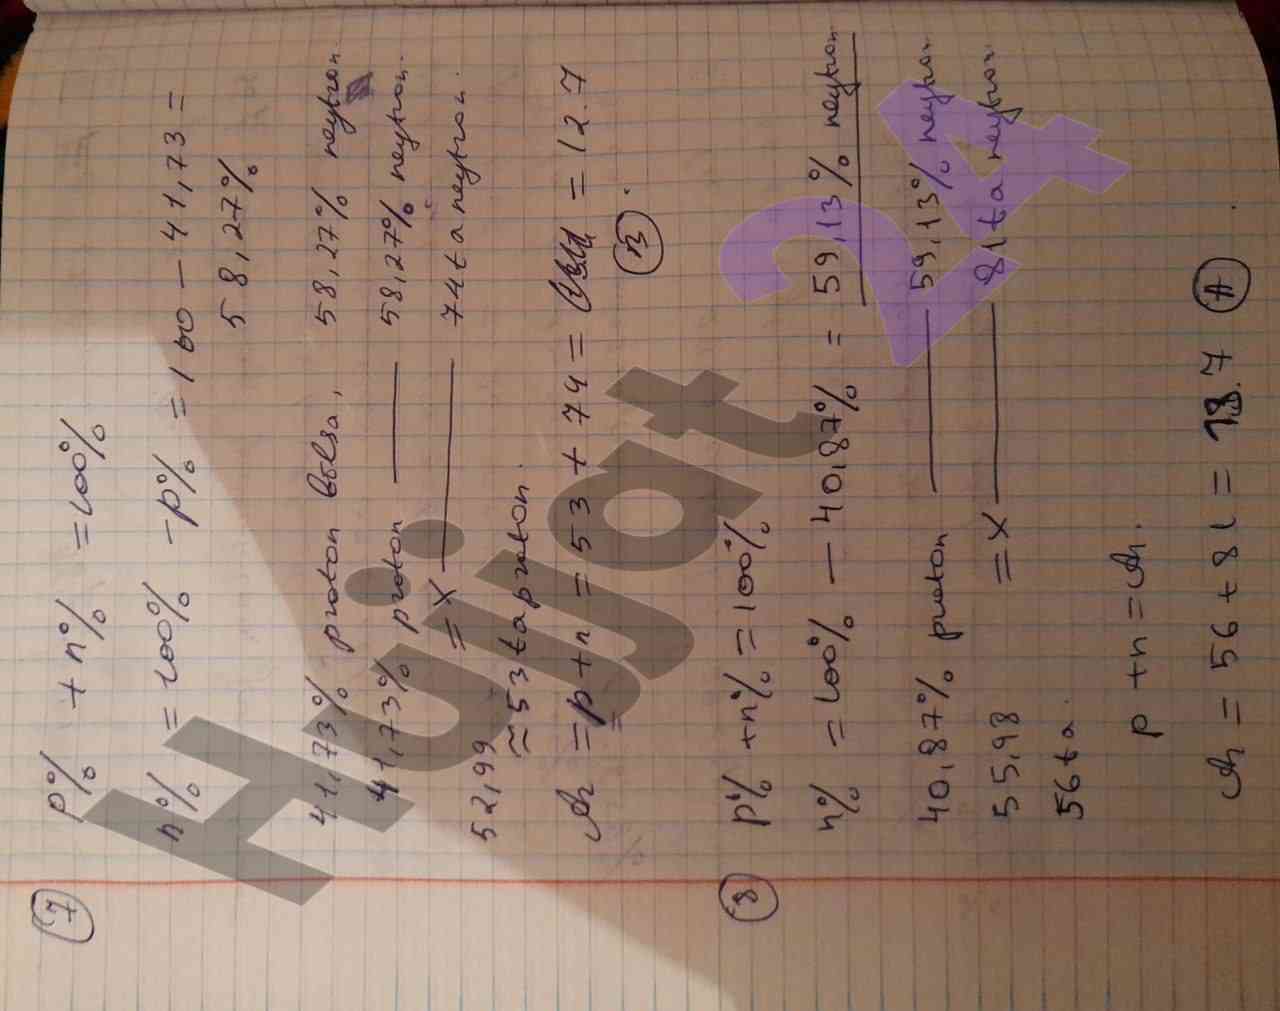 7
p% + n% = 100%
n% = 100% - p% = 100 - 41,73 =
58,27%
41,73% proton bo'lsa, 58,27% neytron
41,73% proton —— 58,27% neytron.
52,99 = x —— 74 ta neytron.
≈ 53 ta proton.
Ar = p + n = 53 + 74 = = 127
B
8
p% + n% = 100%
n% = 100% - 40,87% = 59,13% neytron
40,87% proton —— 59,13% neytron
55,98 = x —— 81 ta neytron
56 ta.
p + n = Ar.
Ar = 56 + 81 = 137 A
Hujjat
24